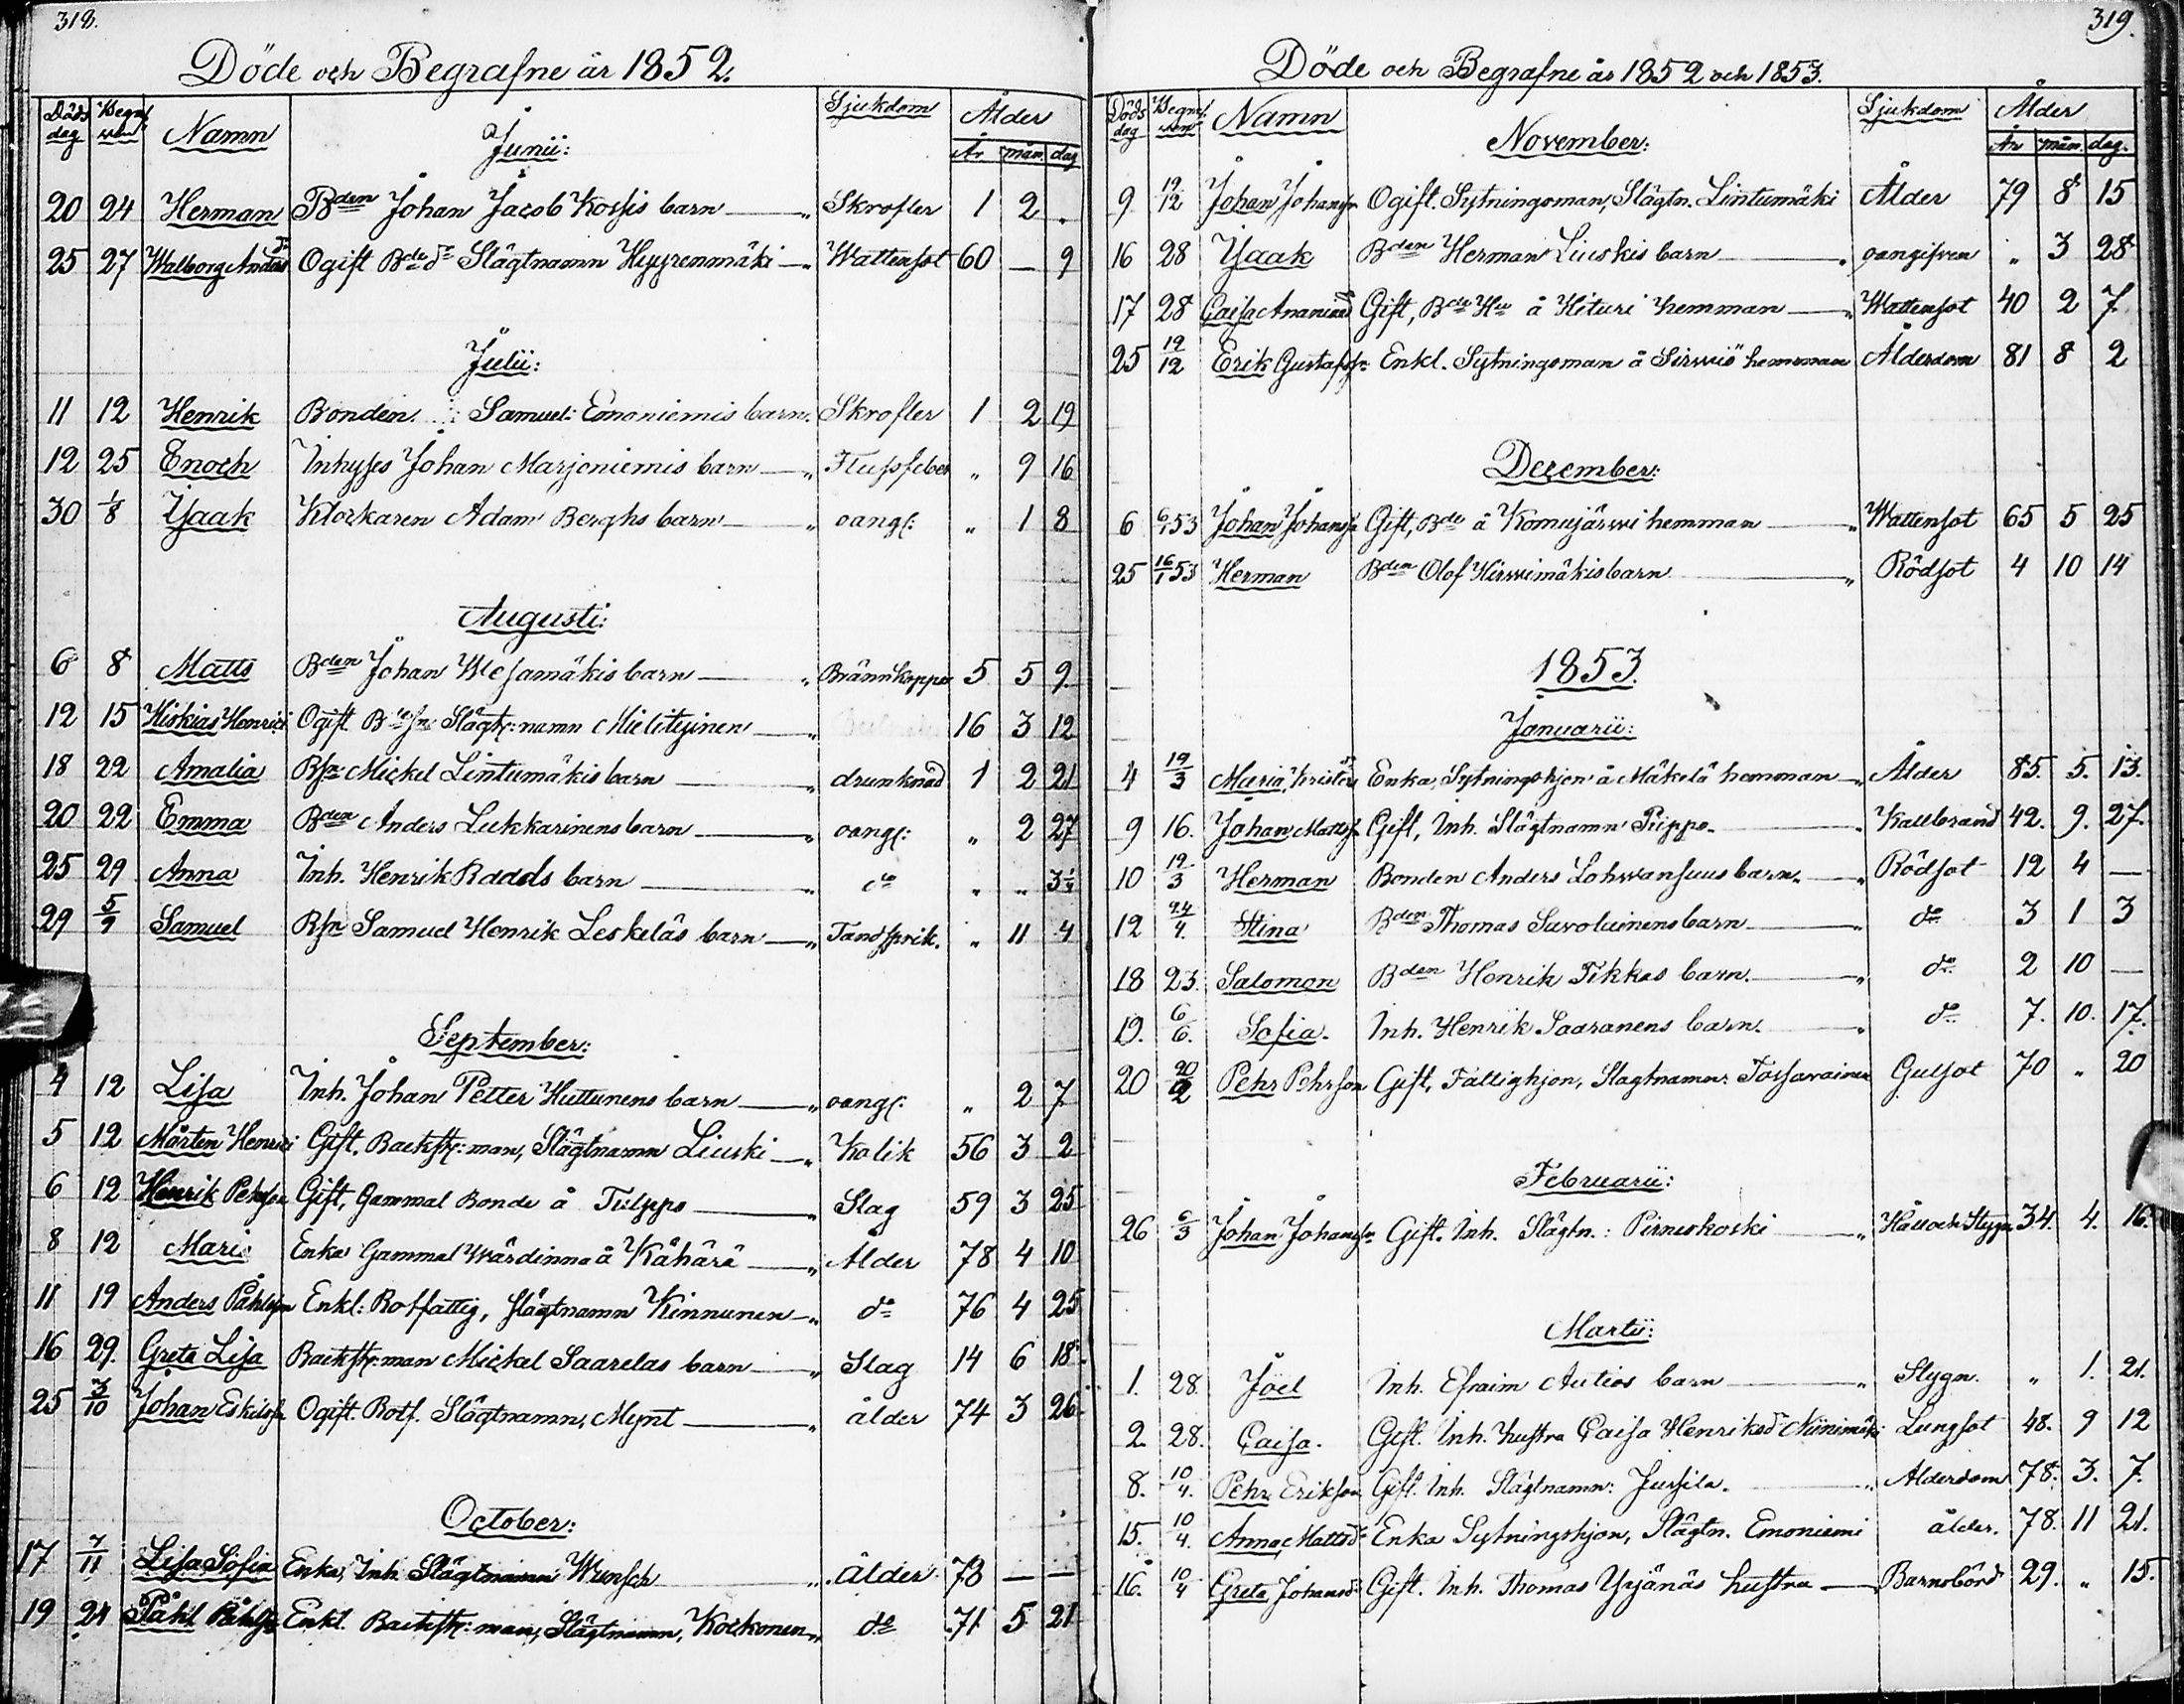 318.
Döde och Begrafne år 1852.
Döds dag Begrafven Namn Sjukdom Ålder
År mån dag
Junii:
20 24 Herman Bden Johan Jacob Koskis barn " Skrofler 1 2 "
25 27 Walborg Andersdr Ogift Bde dr Slägtnamn Hyyrenmäki " Wattensot 60 — 9
Julii:
11 12 Henrik Bonden Samuel Emoniemis barn. Skrofler 1 2 19
12 25 Enoch Inhyses Johan Marjoniemis barn " Flussfeber " 9 16
30 1/8 Isaak Klockaren Adam Berghs barn " oangf: " 1 8
Augusti:
6 8 Matts Bden Johan Wesamäkis barn " Brännkoppor 5 5 9.
12 15 Hiskias Henrici Ogift Slägt:namn " 16 3 12
18 22 Amalia Bsn Mickel Lintumäkis barn " drunknad 1 2 21
20 22 Emma Bden Anders Lukkarinens barn " oangf: " 2 27
25 29 Anna Inh. Henrik Raads barn " do " " 3
29 5/9 Samuel Bsn Samuel Henrik Leskeläs barn " Tandsprik. " 11 4
September:
4 12 Lisa Inh. Johan Petter Huttunens barn " oangf: " 2 7
5 12 Mårten Henrici Gift. Backst:man, Slägtnamn Liuski " Kolik 56 3 2
6 12 Henrik Pehrson Gift, Gammal Bonde å Tulppo " Slag 59 3 25
8 12 Maria Enka Gammal Wärdinna å Kähärä " Ålder 78 4 10
11 19 Anders Påhlsn Enkl: Rotfattig, slägtnamn Kinnunen " do 76 4 25
16 29. Greta Lisa Backst:man Mickel Saarelas barn " Slag 14 6 18
25 3/10 Johan Eskilsn Ogift. Rotf. Slägtnamn, Mynt " ålder 74 3 26
October:
17 7/11 Lisa Sofia Enka, Inh Slägtnamn Wunsch " Ålder 73 — —
19 24 Påhl Påhlsn Enkl. Backst:man, Slägtnamn, Kockonen " do 71 5 21
319.
Döde och Begrafne år 1852 och 1853.
Döds dag Begrafven Namn Sjukdom Ålder
År mån. dag.
November:
9 19/12 Johan Johansn Ogift. Sytningsman, Slägtn. Lintumäki Ålder 79 8 15
16 28 Isaak Bden Herman Liuskis barn " oangifven " 3 28
17 28 Caisa Ananiaedr Gift, Bde Hu å Hituri hemman " Wattensot 40 2 7
25 19/12 Erik Gustafsn: Enkl. Sytningsman å Sirwiö hemman Ålderdom 81 8 2
Dezember:
6 6/1 53 Johan Johansn Gift, Bde å Komujärwi hemman " Wattensot 65 5 25
25 16/1 53 Herman Bden Olof Hirwimäkis barn " Rödsot 4 10 14
1853.
Januarii:
4 19/3 Maria Kristersdr Enka, Sytningshjon å Mäkelä hemman " Ålder 85. 5. 13.
9 16. Johan Mattsn Gift, Inh. Slägtnamn Piippo. " Kallbrand 42. 9. 27.
10 19/3 Herman Bonden Anders Lohwansuus barn. " Rödsot 12 4 —
12 24/4. Stina Bden Thomas Savolainens barn " do 3 1 3
18 23. Salomon Bden Henrik Tikkas barn. " do 2 10 —
19. 6/6. Sofia. Inh. Henrik Saaranens barn. " do 7. 10. 17.
20 20/2 Pehr Pehrson Gift, Fattighjon, Slagtnamn: Tossavainen Gulsot 70 " 20
Februarii:
26 6/3 Johan Johansn Gift. Inh. Slägtn.: Pirneskoski " Håll och Stygn 34. 4. 16.
Martii:
1. 28. Joel Inh. Efraim Autios barn " Stygn. " 1. 21.
2. 28. Caisa. Gift. Inh. hustru Caisa Henriksdr Niinimäki Lungsot 48. 9 12
8. 10/4. Pehr Erikson Gift. Inh. Slägtnamn: Jussila. " Ålderdom 78. 3. 7.
15. 10/4. Anna Mattsdr Enka Sytningshjon, Slägtn. Emoniemi ålder. 78. 11 21.
16. 10/4 Greta Johansdr Gift. Inh. Thomas Yrjänäs hustru Barnsbörd 29. " 15.